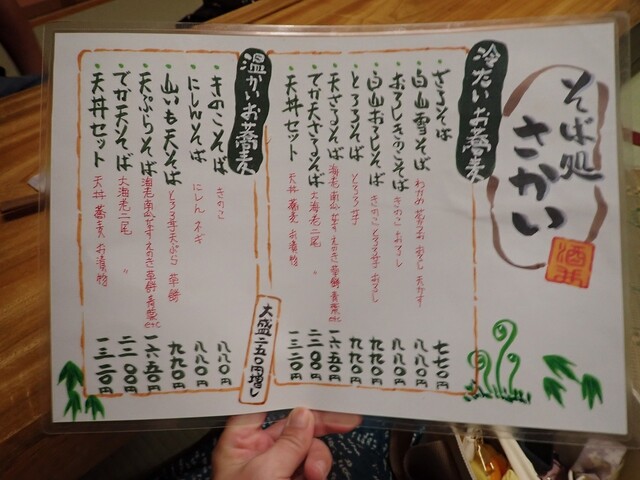 そば処
さかい
酒井
冷たいお蕎麦
ざるそば 七七〇円
白山雪そば わかめ おろし 天かす 八八〇円
おろしきのこそば きのこ おろし 八八〇円
白山おろしそば きのこ とろろ芋 おろし 九九〇円
とろろそば とろろ芋 九九〇円
天ざるそば 海老 南瓜 茄子 えのき 草餅 青葉 etc 一六五〇円
でか天ざるそば 大海老二尾 二二〇〇円
天丼セット 天丼 蕎麦 お漬物 一三二〇円
大盛二五〇円増し
温かいお蕎麦
きのこそば きのこ 八八〇円
にしんそば にしん ネギ 八八〇円
山いも天そば とろろ芋天ぷら 草餅 九九〇円
天ぷらそば 海老 南瓜 茄子 えのき 草餅 青葉 etc 一六五〇円
でか天そば 大海老二尾 二二〇〇円
天丼セット 天丼 蕎麦 お漬物 一三二〇円